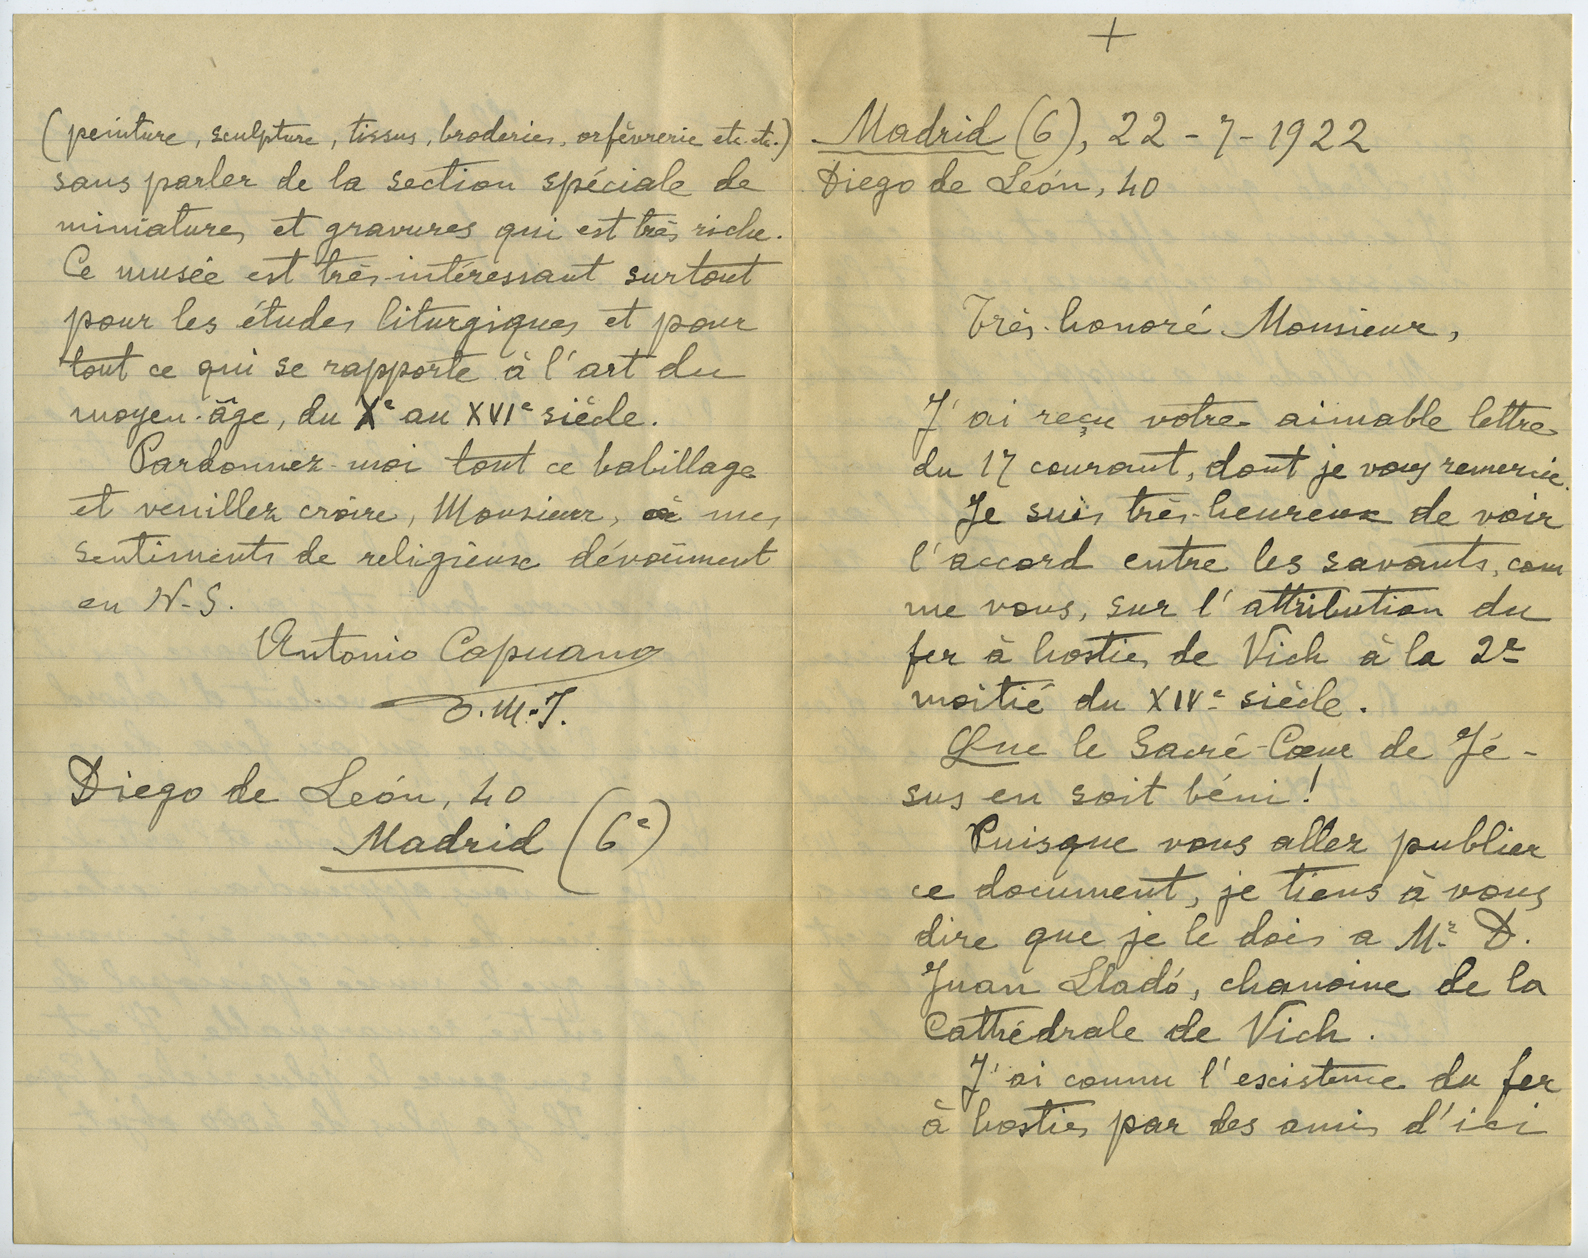 +
Madrid (6), 22-7-1922
Diego de León, 40
Très-honoré Monsieur,
J'ai reçu votre aimable lettre
du 17 courant, dont je vous remercie.
Je suis très-heureux de voir
l'accord entre les savants, com
me vous, sur l'attribution du
fer à hosties de Vich à la 2e
moitié du XIVe siècle.
Que le Sacré-Cœur de Jé-
sus en soit béni!
Puisque vous allez publier
ce document, je tiens à vous
dire que je le dois a Mr D.
Juan Lladó, chanoine de la
Cathédrale de Vich.
J'ai connu l'existence du fer
à hosties par des amis d'ici
(peinture, sculpture, tissus, broderies, orfèvrerie etc. etc.)
sans parler de la section spéciale de
miniatures et gravures qui est très riche.
Ce musée est très-intéressant surtout
pour les études liturgiques et pour
tout ce qui se rapporte à l'art du
moyen-âge, du Xe au XVIe siècle.
Pardonnez-moi tout ce babillage
et veuillez croire, Monsieur, à mes
sentiments de religieux dévoûment
en N-S.
Antonio Capuano
O.M.I.
Diego de León, 40
Madrid (6e)